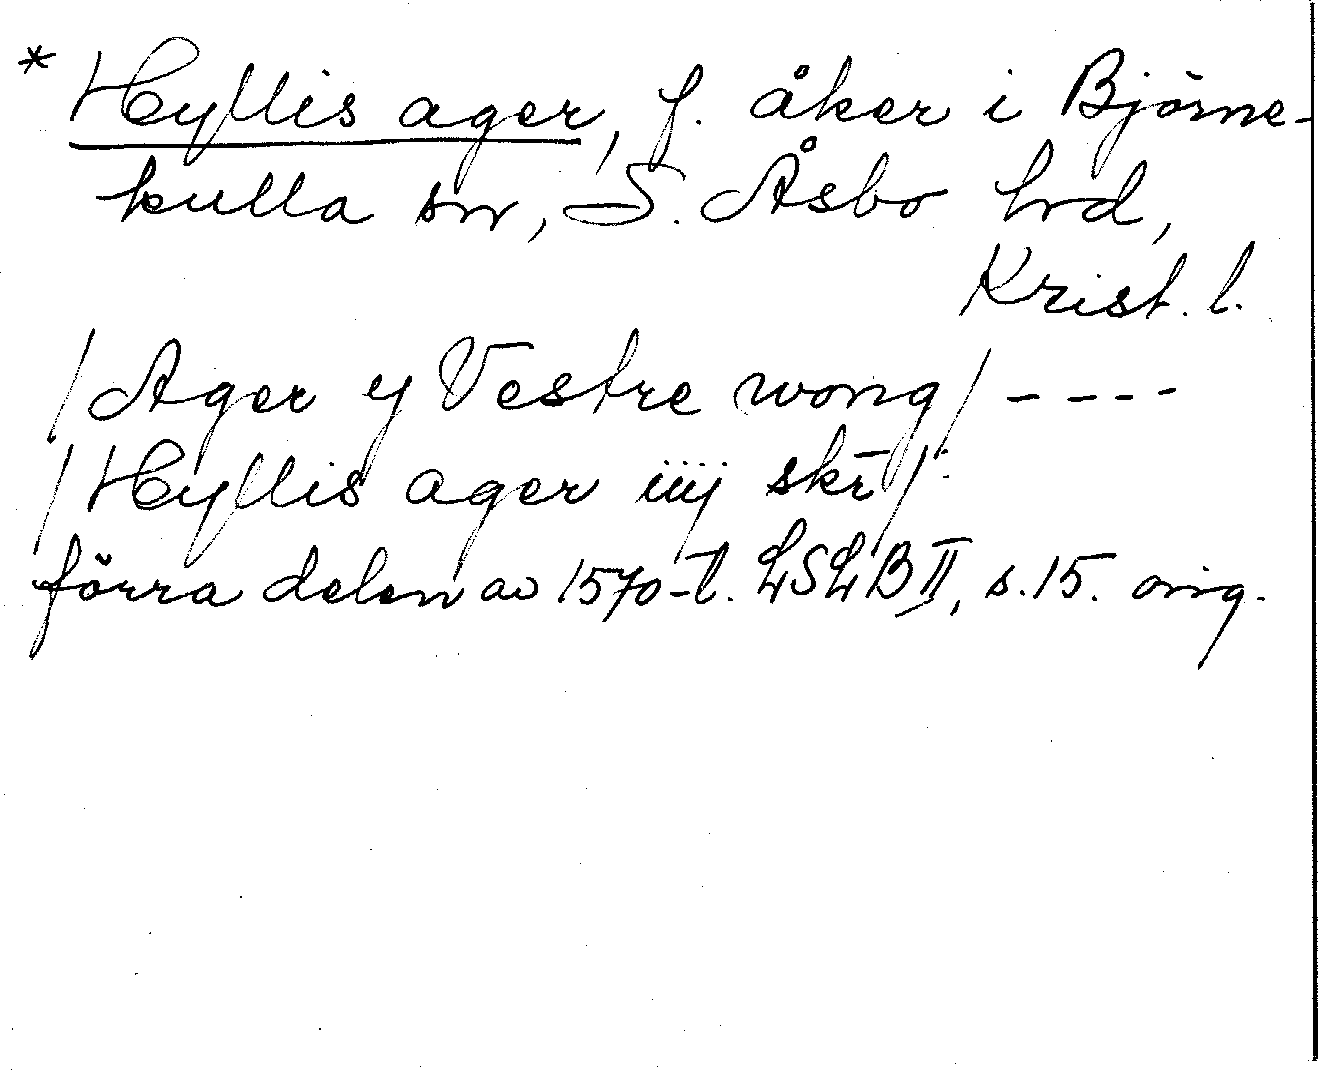 * Hyllis ager, f. åker i Björne-
kulla sn, S. Åsbo hrd,
Krist. l.
/Ager y Vestre wong/ ----
/Hyllis ager iiij skr̄/.
förra delen av 1570-t. LSLB II, s. 15. orig.